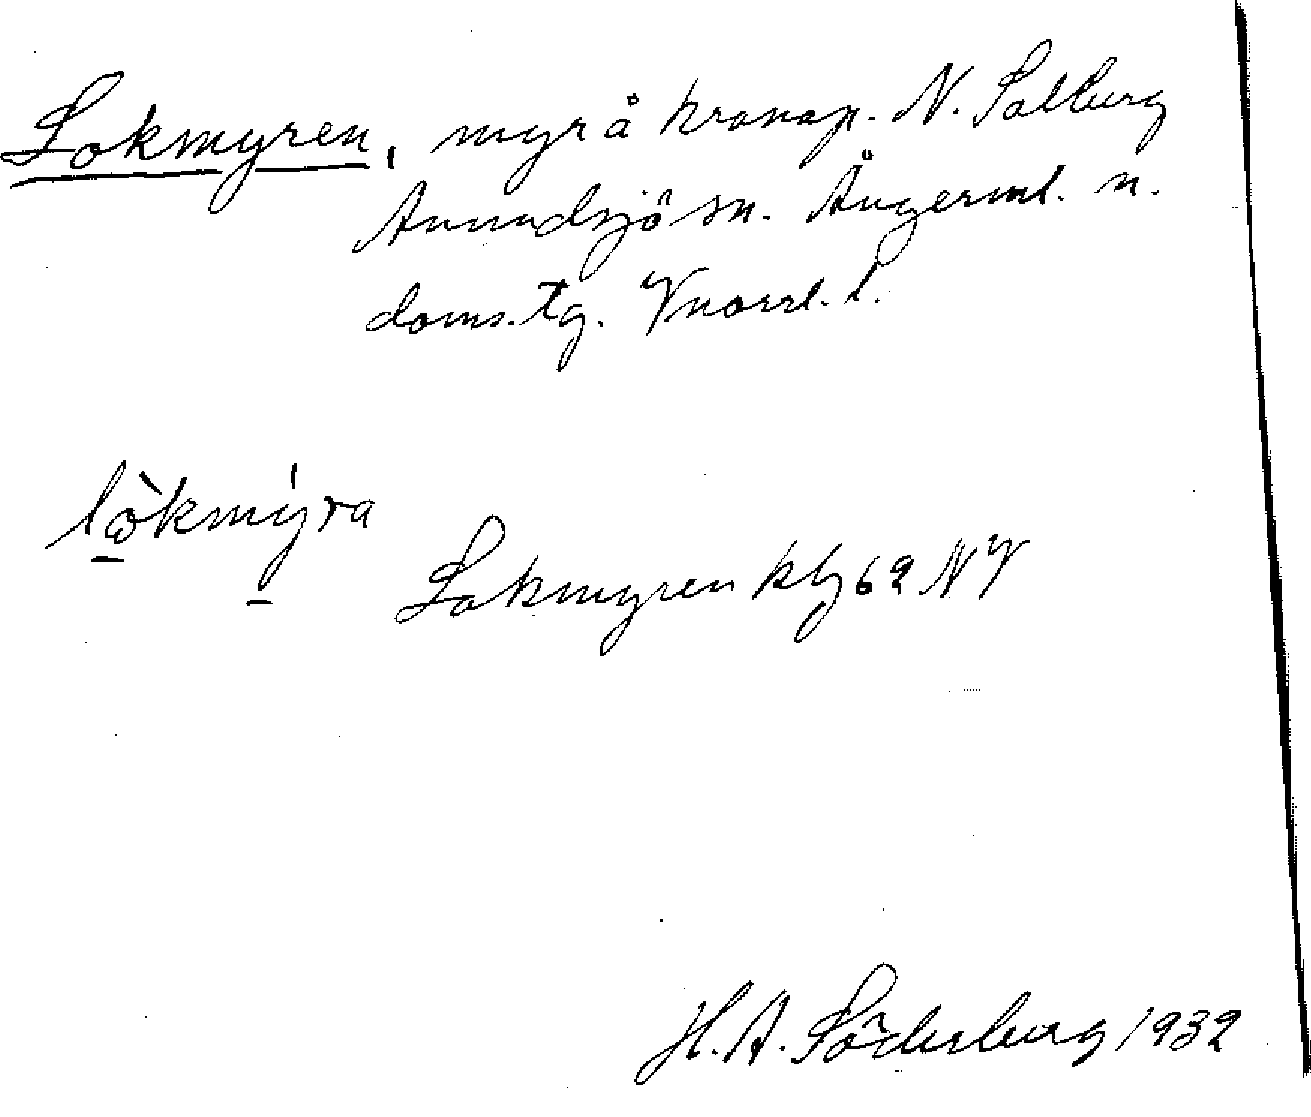 Lokmyren, myr å kronop. N. Solberg
Anundsjö sn. Ångerml. n.
doms.tg. Vnorrl. l.
lòkmýra
Lokmyren kbl 62 NV
H. A. Söderberg 1932